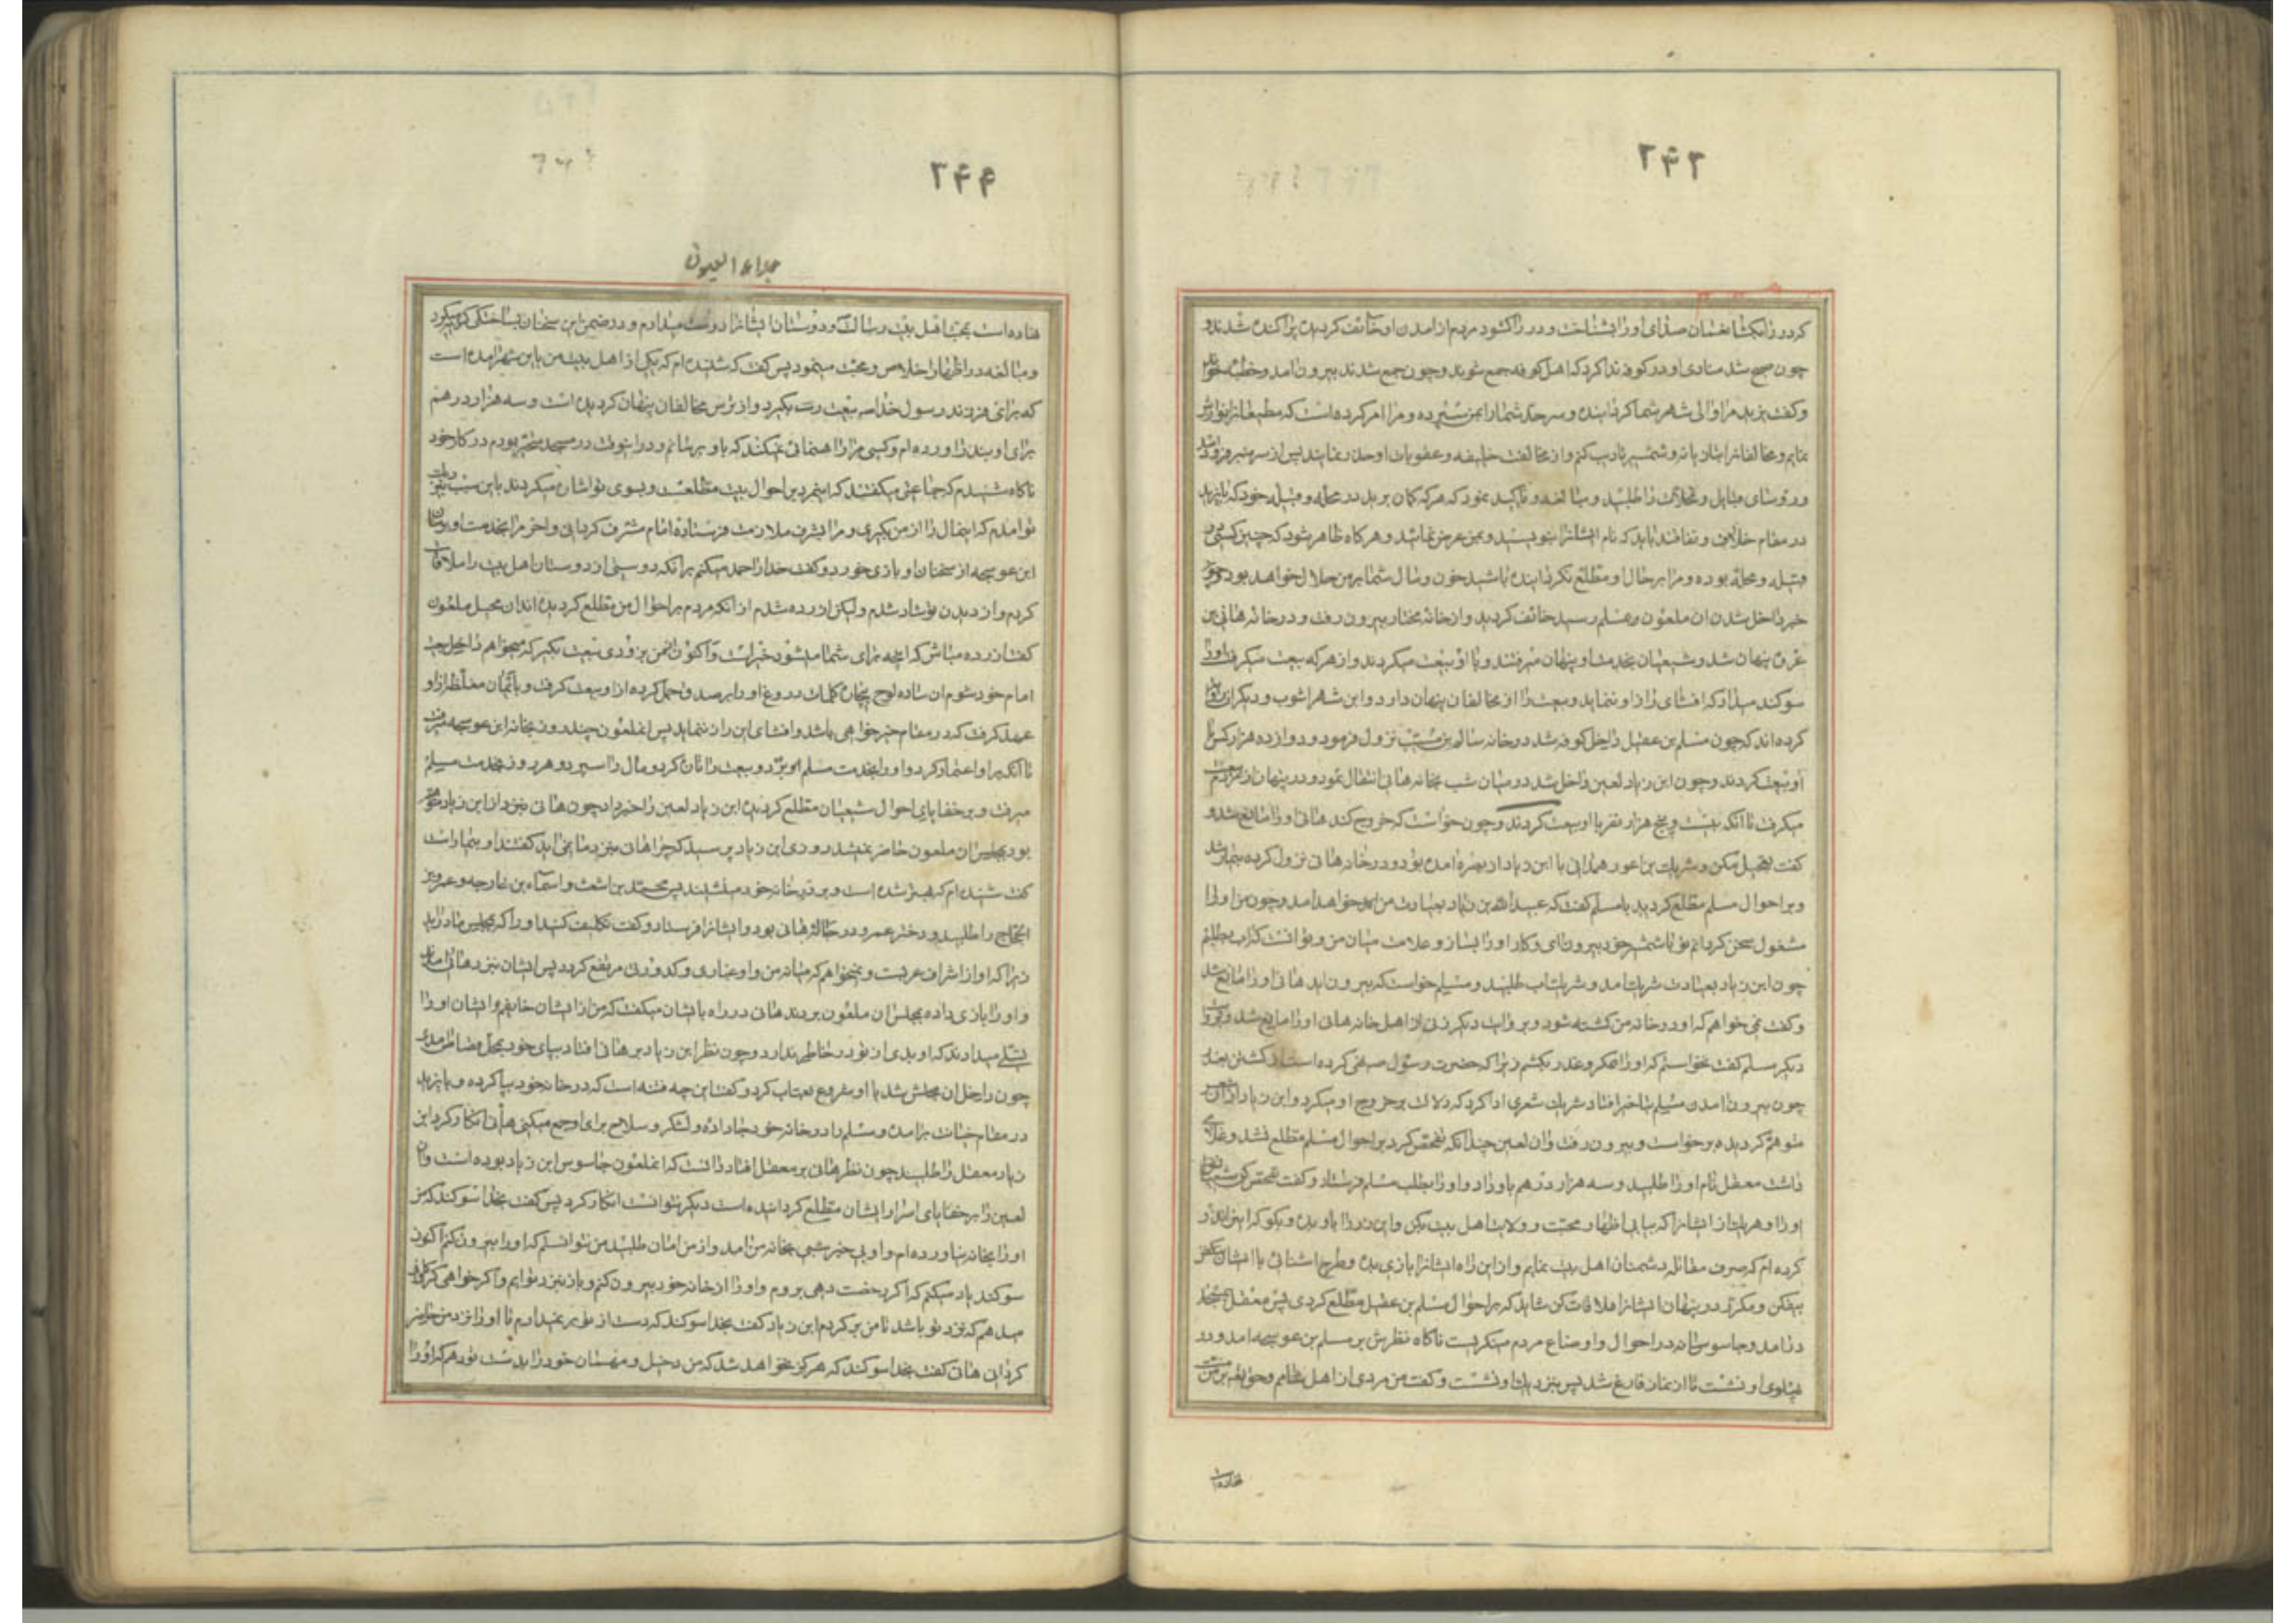 ۲۴۲
کرد در را بکشا نعمان صدای او را بشناخت و در را کشود مردم از آمدن او خائف کردیده پراکنده شدند و
چون صبح شد منادی او در کوفه ندا کرد که اهل کوفه جمع شوند و چون جمع شدند بیرون آمد و خطبه خواند
و کفت یزید مرا والی شهر شما کردانیده و سرحد شما را بمن سپرده و مرا امر کرده است که مطیعانرا نوازش
نمایم و مخالفانرا بتازیانه و شمشیر تأدیب کنم و از مخالفت خلیفه و عقوبات او حذر نمایید پس از منبر فرود آمد
و رؤسای قبایل و محلات را طلبید و مبالغه و تأکید نمود که هر که کمان برید در محله و قبیله خود که با یزید
در مقام خلاف و نفاقند باید که نام ایشانرا بنویسید و بمن عرض نمائید و هر کاه ظاهر شود که چنین کسی در
قبیله و محله بوده و مرا بر حال او مطلع نکردانیده باشید خون و مال شما بر من حلال خواهد بود چون
خبر داخل شدن آن ملعون بمسلم رسید خائف کردید و از خانه مختار بیرون رفت و در خانه هانی بن
عروه پنهان شد و شیعیان بخدمت او پنهان میرفتند و با او بیعت میکردند و از هر که بیعت میکرفت او را
سوکند میداد که افشای راز او ننماید و بیعت را از مخالفان پنهان دارد و ابن شهر اشوب و دیکران روایت
کرده اند که چون مسلم بن عقیل داخل کوفه شد در خانه سالم بن مسیب نزول فرمود و دوازده هزار کس با
او بیعت کردند و چون ابن زیاد لعین داخل شد در میان شب بخانه هانی انتقال نمود و در پنهان از مردم بیعت
میکرفت تا آنکه بیست و پنج هزار نفر با او بیعت کردند و چون خواست که خروج کند هانی او را مانع شد و
کفت تعجیل مکن و شریک بن اعور همدانی با ابن زیاد از بصره آمده بود و در خانه هانی نزول کرده بیمار شد
و بر احوال مسلم مطلع کردید با مسلم کفت که عبیدالله بن زیاد بعیادت من خواهد آمد و چون من او را
مشغول سخن کردانم تو با شمشیر خود بیرون آی و کار او را بساز و علامت میان من و تو آنست که آب بطلبم
چون ابن زیاد بعیادت شریک آمد و شریک آب طلبید و مسلم خواست که بیرون آید هانی او را مانع شد
و کفت نمی خواهم که او در خانه من کشته شود و بروایت دیکر زنی از اهل خانه هانی او را مانع شد و بروایت
دیکر مسلم کفت نخواستم که او را بمکر و غدر بکشم زیرا که حضرت رسول ص نهی کرده است از کشتن بغدر
چون بیرون آمدن مسلم بتأخیر افتاد شریک شعری ادا کرد که دلالت بر خروج او میکرد و ابن زیاد از آن شعر
متوهم کردیده برخواست و بیرون رفت و آن لعین چندانکه تفحص کرد بر احوال مسلم مطلع نشد و غلامی
داشت معقل نام او را طلبید و سه هزار درهم باو داد و او را بطلب مسلم فرستاد و کفت تفحص کن شیعیان
او را و هر یک از ایشانرا که بیابی اظهار محبت و ولایت اهل بیت بکن و این زر را باو بده و بکو که این را نذر
کرده ام که صرف مقاتله دشمنان اهل بیت نمایم و از این راه ایشانرا بازی بده و طرح اشنائی با ایشان
بیفکن و مکرر در پنهان ایشانرا ملاقات کن شاید که بر احوال مسلم بن عقیل مطلع کردی پس معقل بمسجد
در آمد و جاسوسانه در احوال و اوضاع مردم مینکریست ناکاه نظرش بر مسلم بن عوسجه آمد و در
پهلوی او نشست تا از نماز فارغ شد پس بنزدیک او نشست و کفت من مردی از اهل شامم و حقتعالی بر من منت
نهاده است
۲۴۴
جلاء العیون
نهاده است بمحبت اهل بیت رسالت و دوستان ایشانرا دوست میدارم و در ضمن این سخنان بساختکی کریه میکرد
و مبالغه در اظهار اخلاص و محبت مینمود پس کفت که شنیده ام که یکی از اهل بیت من باین شهر آمده است
که برای فرزند رسول خدا ص بیعت بکیرد و از ترس مخالفان پنهان کردیده است و سه هزار درهم
برای او بنذر آورده ام و کسی مرا راهنمائی نمیکند که باو برسانم و در اینوقت در مسجد متحیر بودم در کار خود
ناکاه شنیدم که جماعتی میکفتند که اینمرد بر احوال بیت مطلعست و بسوی تو اشاره میکردند باین سبب بنزدیک
تو آمدم که اینمال را از من بکیری و مرا بشرف ملازمت فرستاده امام مشرف کردانی و اخر مرا بخدمت او برسان
ابن عوسجه از سخنان او بازی خورد و کفت خدا را حمد میکنم بر آنکه دوستی از دوستان اهل بیت را ملاقات
کردم و از دیدن تو شاد شدم ولیکن ازرده شدم از آنکه مردم بر احوال من مطلع کردیده اند آن محیل ملعون
کفت ازرده مباش که آنچه برای شما میشود خیر است و اکنون از من بزودی بیعت بکیر که میخواهم داخل بیعت
امام خود شوم آن ساده لوح بیچاره کلمات دروغ او را بر صدق حمل کرده از او بیعت کرفت و با یمان مغلظه از او
عهد کرفت که در مقام خیر خواهی باشد و افشای این راز ننماید پس انملعون چند روز بخانه ابن عوسجه میرفت
تا آنکه بر او اعتماد کرد و او را بخدمت مسلم برد و بیعت را تازه کرد و مال را سپرد و هر روز بخدمت مسلم
میرفت و بر خفایای احوال شیعیان مطلع کردیده ابن زیاد لعین را خبر داد چون هانی بنزد ابن زیاد متوهم
بود بمجلس آن ملعون حاضر نمیشد روزی ابن زیاد پرسید که چرا هانی بنزد ما نمی آید کفتند او بیمار است
کفت شنیده ام که بهتر شده است و بر در خانه خود مینشیند پس محمد بن اشعث و اسماء بن خارجه و عمرو بن
الحجاج را طلبید و دختر عمرو در خانه هانی بود و ایشانرا فرستاد و کفت تکلیف کنید او را که بمجلس ما در آید
زیرا که او از اشراف عربست و نمیخواهم که میانه من و او غباری و کدورتی مرتفع کردد پس ایشان بنزد هانی آمدند
و او را بازی داده بمجلس آن ملعون بردند هانی در راه بایشان میکفت که من از ایشان خایفم و ایشان او را
تسلی میدادند که او بدی از تو در خاطر ندارد و چون نظر ابن زیاد بر هانی افتاد بپای خود بمحل قصاص آمده
چون داخل آن مجلس شد با او شروع بعتاب کرد و کفت این چه فتنه است که در خانه خود بپا کرده و با یزید
در مقام خیانت برآمده و مسلم را در خانه خود جا داده و لشکر و سلاح برای او جمع میکنی هانی انکار کرد ابن
زیاد معقل را طلبید چون نظر هانی بر معقل افتاد دانست که انملعون جاسوس ابن زیاد بوده است و آن
لعین را بر خفایای اسرار ایشان مطلع کردانیده است دیکر نتوانست انکار کرد پس کفت بخدا سوکند که من
او را بخانه نیاورده ام و او بی خبر شبی بخانه من آمد و از من امان طلبید من نتوانستم که او را بیرون کنم اکنون
سوکند یاد میکنم که اکر رخصت دهی بروم و او را از خانه خود بیرون کنم و باز بنزد تو آیم و اکر خواهی
میدهم که نزد تو باشد تا من برکردم ابن زیاد کفت بخدا سوکند که دست از تو بر نمیدارم تا او را نزد من حاضر
کردانی هانی کفت بخدا سوکند که هرکز نخواهد شد که من دخیل و مهمان خود را بدست تو دهم که او را